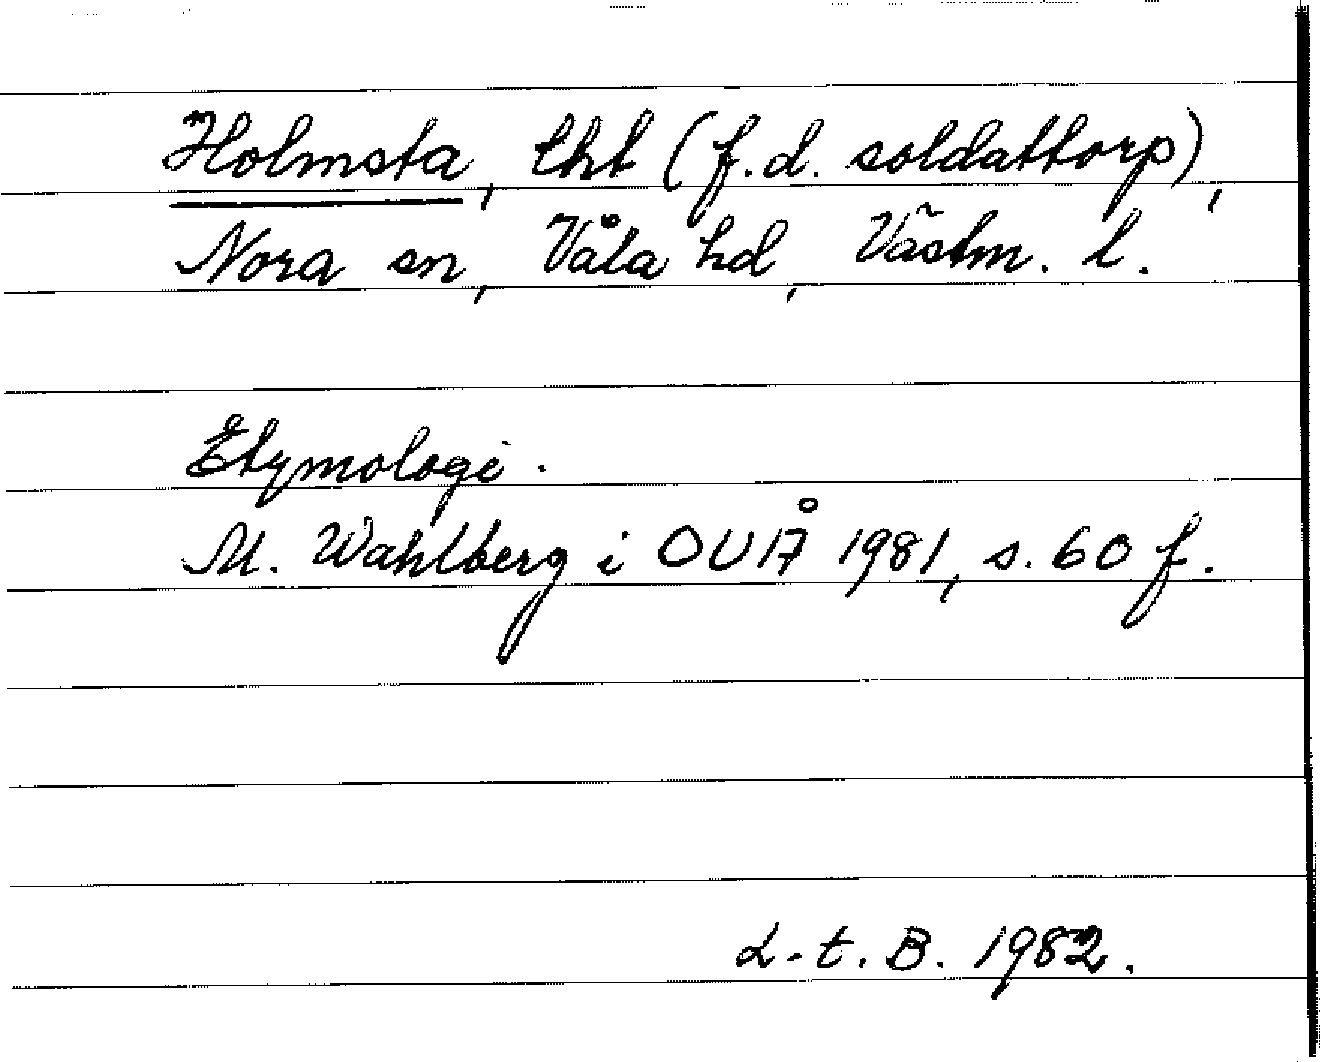 Holmsta, lht (f.d. soldattorp),
Nora sn, Våla hd, Västm. l.
Etymologi.
M. Wahlberg i OUÅ 1981, s. 60 f.
L-t. B. 1982.